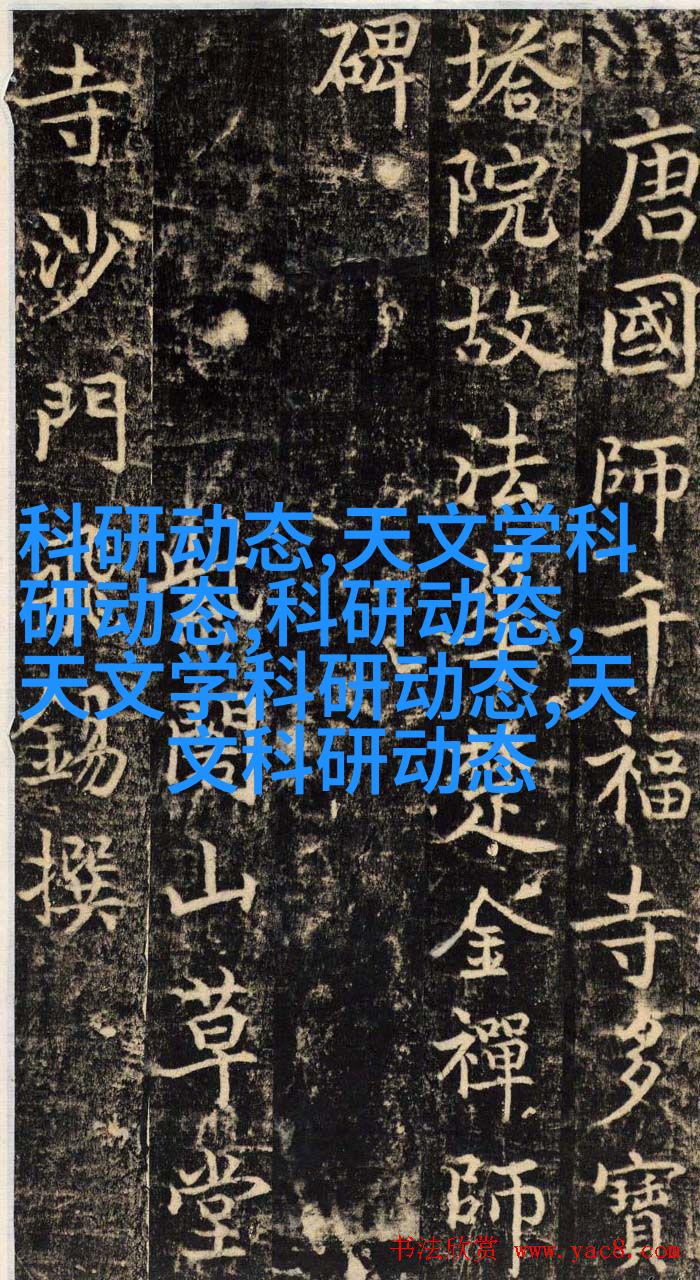 唐國師千福寺多寶
塔院故法金禪師
碑
山草堂
寺沙門錫撰
科研动态,天文学科
研动态,科研动态,
天文学科研动态,天
文科研动态
书法欣赏 www.yac8.com